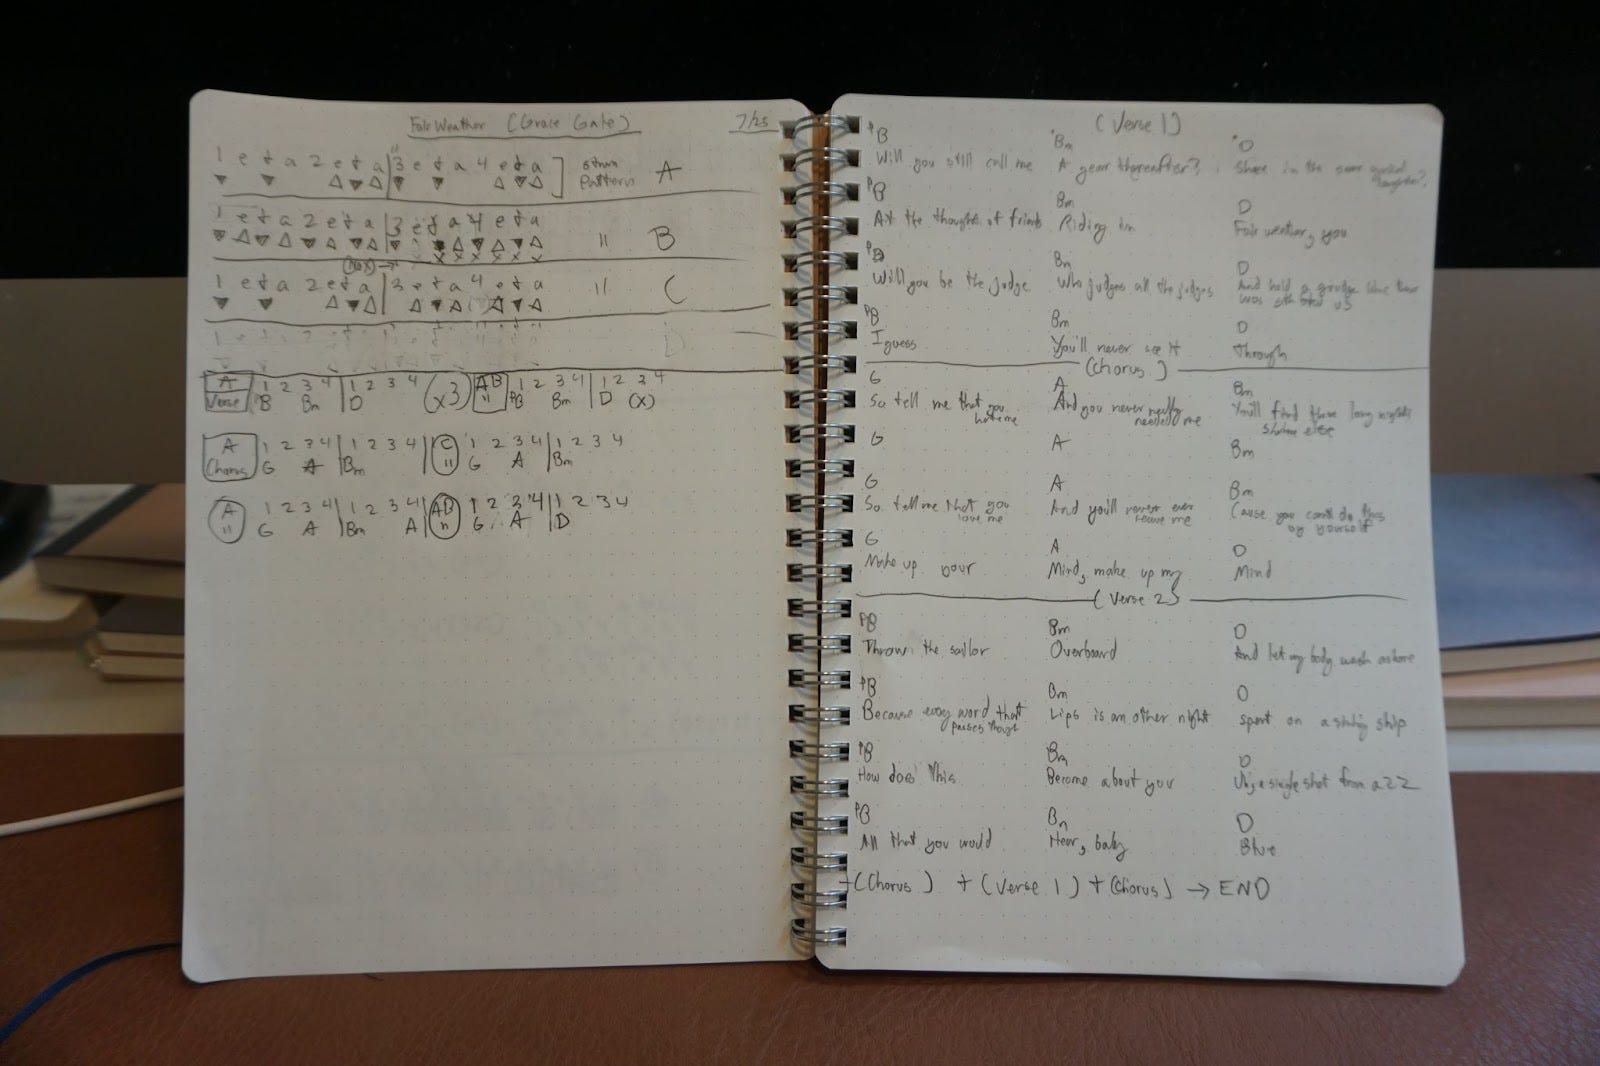 Fair Weather (Grace Gale) 7/25
1 e & a 2 e & a | 3 e & a 4 e & a ] strum pattern A
1 e & a 2 e & a | 3 e & a 4 e & a " B
x x x x x
→
1 e & a 2 e & a | 3 e & a 4 e & a " C
1 e & a 2 D
A Verse | 1 2 3 4 | 1 2 3 4 (x3) AB " | 1 2 3 4 | 1 2 3 4
PB Bm | D PB Bm | D (x)
A Chorus | 1 2 3 4 | 1 2 3 4 | C " 1 2 3 4 | 1 2 3 4
G A | Bm G A | Bm
A " 1 2 3 4 | 1 2 3 4 | AB " 1 2 3 4 | 1 2 3 4
G A | Bm A G A | D
(Verse 1)
PB Bm D
Will you still call me A year thereafter? Share in the same laughter?
PB Bm D
At the thought of friends Riding in Fair weather, you
PB Bm D
Will you be the judge Who judges all the judges And hold a grudge like there
was sth btwn us
PB Bm D
I guess You'll never see it Through
(Chorus)
G A Bm
So tell me that you hate me And you never really needed me You'll find these long nights
else
G A Bm
G A Bm
So tell me that you love me And you'll never ever leave me Cause you can't do this
by yourself
G A D
Make up your Mind, make up my Mind
(Verse 2)
PB Bm D
Thrown the sailor Overboard And let my body wash ashore
PB Bm D
Because every word that passes through Lips is an other night spent on a sinking ship
PB Bm D
How does this Become about you single shot from a 22
PB Bm D
All that you would Hear, baby Blue
+ (Chorus) + (Verse 1) + (Chorus) → END